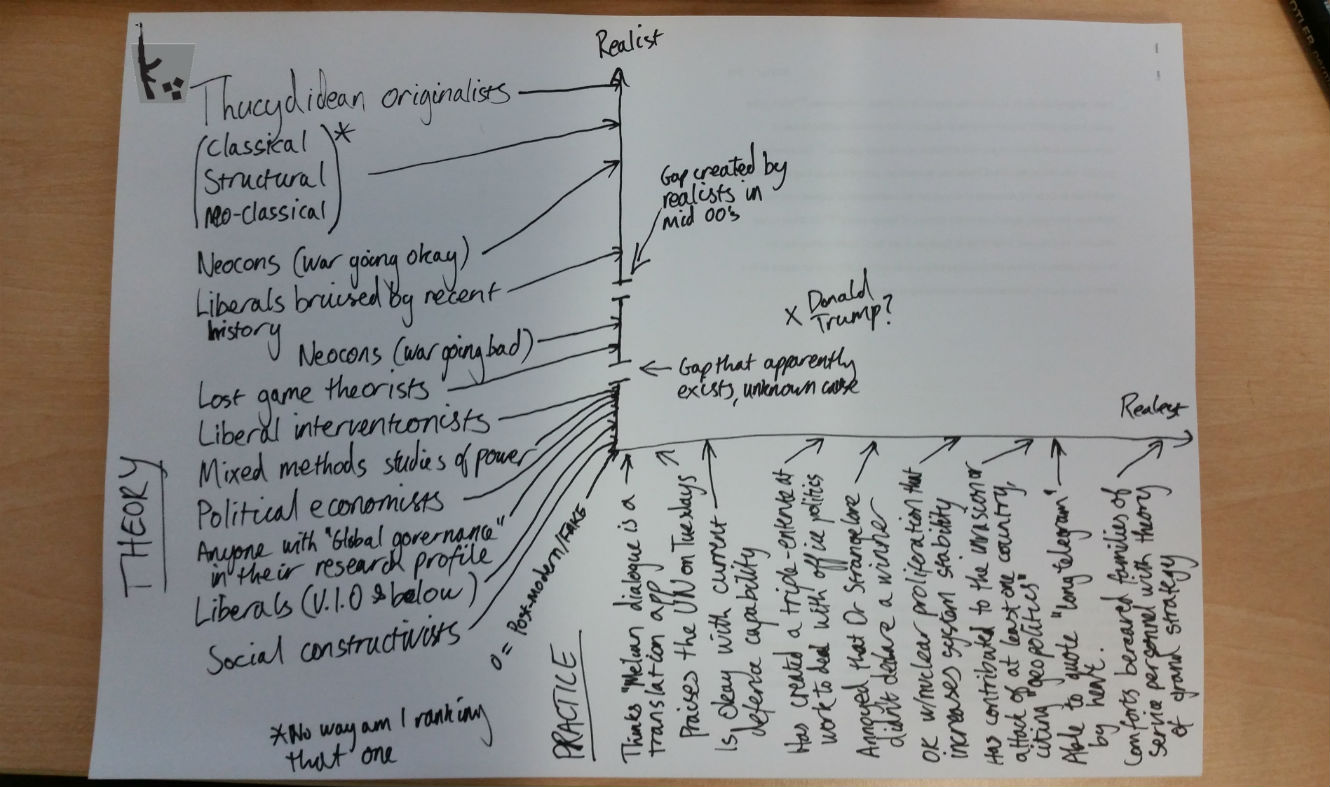 Realist
Thucydidean originalists
(Classical
Structural
neo-classical)*
Neocons (war going okay)
Liberals bruised by recent
history
Neocons (war going bad)
Lost game theorists
Liberal interventionists
Mixed methods studies of power
Political economists
Anyone with "Global governance"
in their research profile
Liberals (V.1.0 & below)
Social constructivists
THEORY
*No way am I ranking
that one
Gap created by
realists in
mid 00's
X Donald
Trump?
Gap that apparently
exists, unknown cause
Realest
0 = Post-modern/FAKE
PRACTICE
Thinks "Melian dialogue is a
translation app"
Praises the UN on Tuesdays
Is okay with current
defence capability
Has created a triple-entente at
work to deal with office politics
Annoyed that Dr Strangelove
didn't declare a winner
OK w/nuclear proliferation that
increases system stability
Has contributed to the invasion or
attack of at least one country,
citing "geopolitics"
Able to quote "long telegram"
by heart.
Comforts bereaved families of
service personnel with theory
of grand strategy